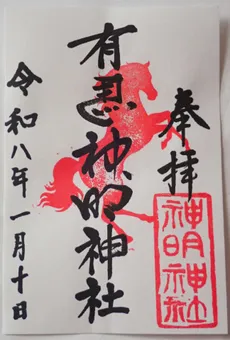 奉拝
有 神明神社
令和八年一月十日
神明神社